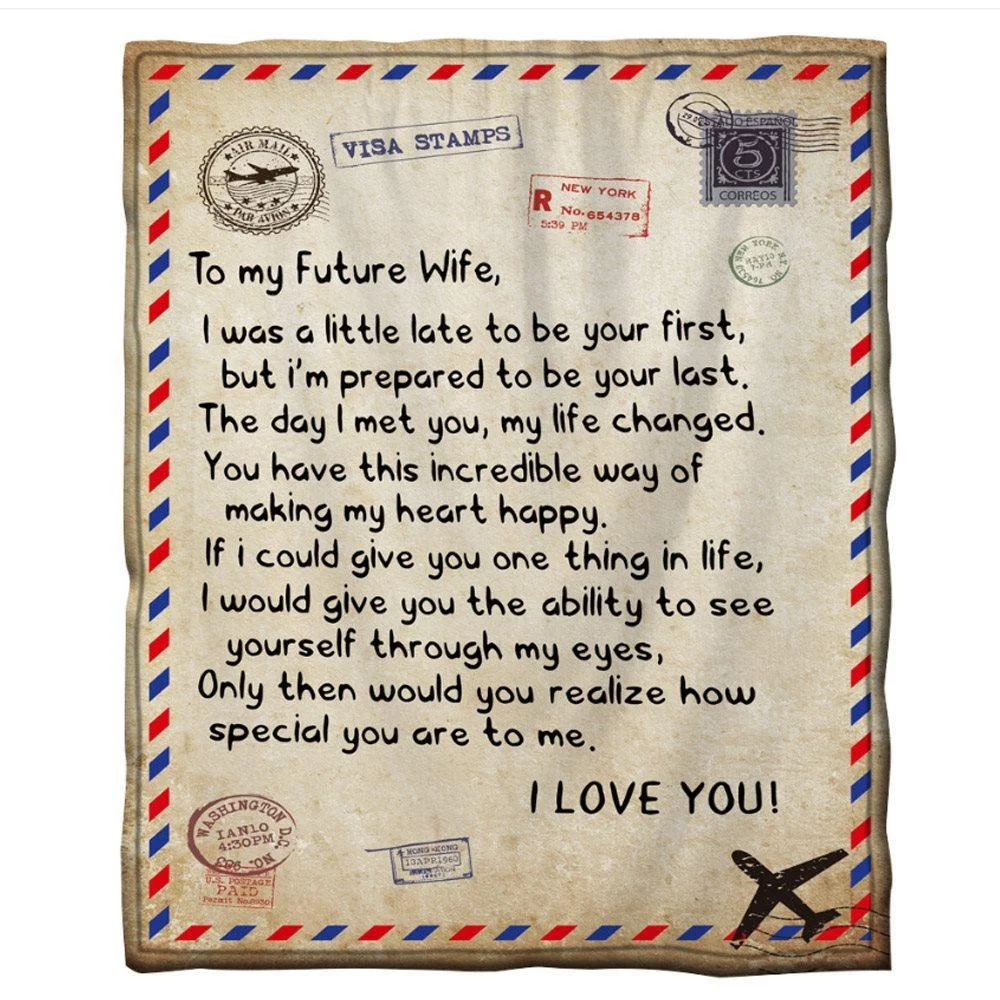 AIR MAIL
PAR AVION
VISA STAMPS
ESTADO ESPAÑOL
5
CTS
CORREOS
NEW YORK
R No. 654378
5:39 PM
To my Future Wife,
I was a little late to be your first,
but i'm prepared to be your last.
The day I met you, my life changed.
You have this incredible way of
making my heart happy.
If i could give you one thing in life,
I would give you the ability to see
yourself through my eyes,
Only then would you realize how
special you are to me.
I LOVE YOU!
WASHINGTON D.C.
IAN10
4:30PM
NO. 983
U.S. POSTAGE
PAID
Permit No.8930
HONG-KONG
13APR1960